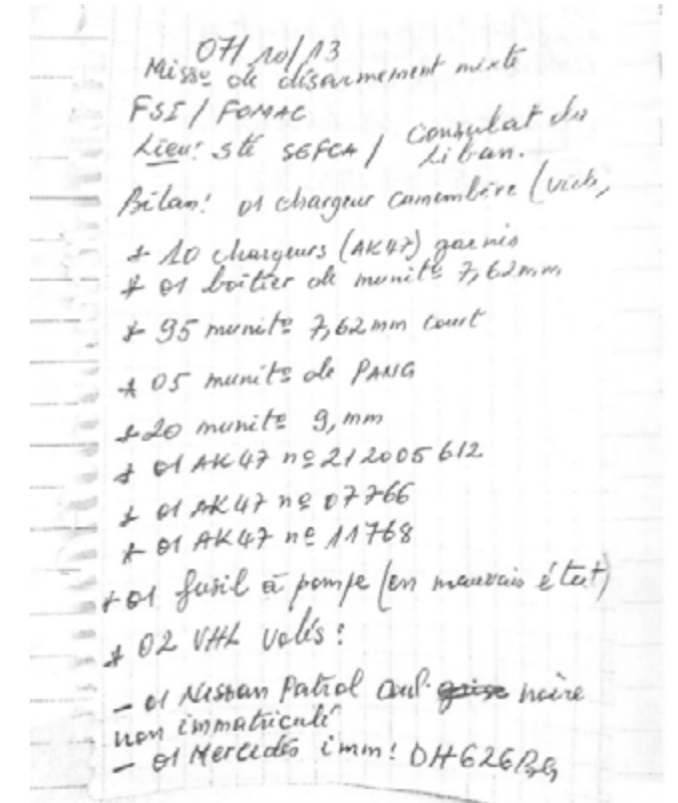 07/10/13
Missº de désarmement mixte
FSI / FOMAC
Lieu: Sté SEFCA / Consulat du Liban.
Bilan: 01 chargeur camembère (vide)
+ 10 chargeurs (AK47) garnis
+ 01 boîtier de munitº 7,62mm
+ 95 munitº 7,62mm court
+ 05 munitº de PANG
+ 20 munitº 9,mm
+ 01 AK47 nº 212005612
+ 01 AK47 nº 07766
+ 01 AK47 nº 11768
+ 01 fusil à pompe (en mauvais état)
+ 02 VHL volés:
- 01 Nissan Patrol coul. noire
non immatriculé
- 01 Mercedés imm: